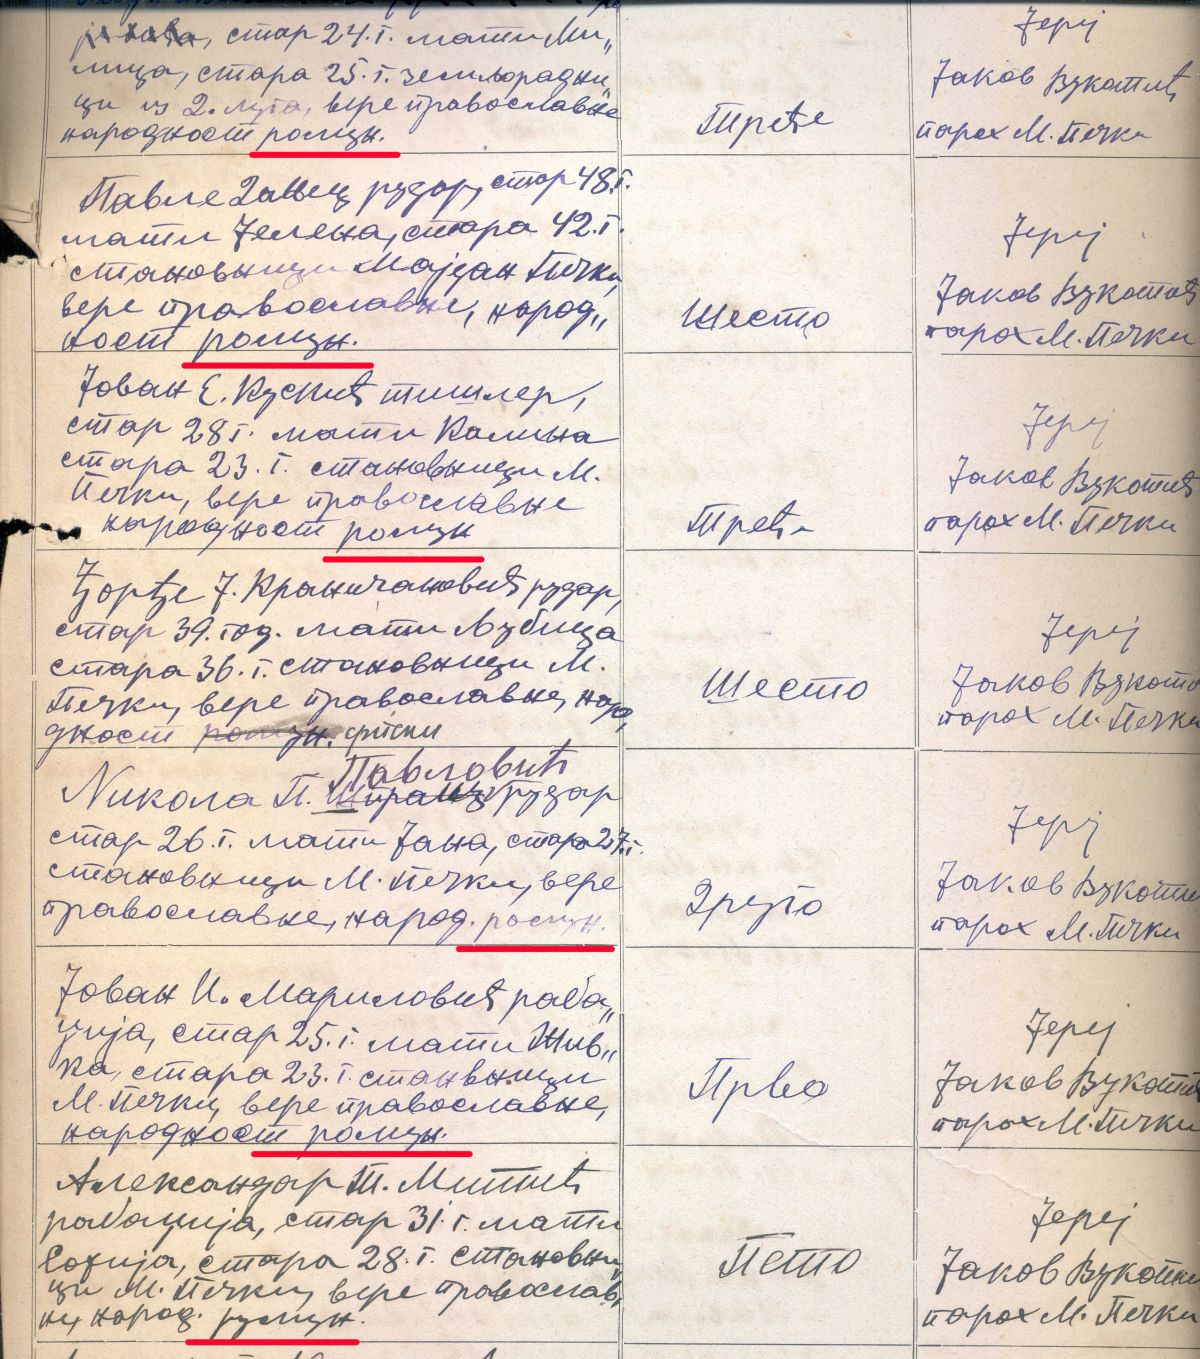 стар 24. г. мати Ми„
лица, стара 25. г. земљорадни„
ци из Д. Луга, вере православне
народност ромун.
Треће
Јереј
Јаков Вукотић
парох М. Печки
Павле рудар, стар 48 г.
мати Јелена, стара 42. г.
становници Мајдан Печки,
вере православне, народ„
ност ромун.
Шесто
Јереј
Јаков Вукотић
парох М. Печки
Јован Е. Кускић тишлер,
стар 28 г. мати Калина
стара 23. г. становници М.
Печки, вере православне
народност ромун
Треће
Јереј
Јаков Вукотић
парох М. Печки
Ђорђе Ј. Краничановић рудар,
стар 39. год. мати Љубица
стара 36. г. становници М.
Печки, вере православне, наро„
дност ромун. српски
Шесто
Јереј
Јаков Вукоти
парох М. Печки
Павловић
Никола П. рудар
стар 26. г. мати Јана, стара 27. г.
становници М. Печки, вере
православне, народ. ромун.
Друго
Јереј
Јаков Вукоти
парох М. Печки
Јован И. Мариловић раба„
џија, стар 25. г. мати Жив„
ка, стара 23. г. становници
М. Печки, вере православне,
народност ромун.
Прво
Јереј
Јаков Вукоти
парох М. Печки
Александар Т. Митић
рабаџија, стар 31. г. мати
Софија, стара 28. г. становни„
ци М. Печки, вере православ„
не, народ. румун.
Пето
Јереј
Јаков Вукоти
парох М. Печки